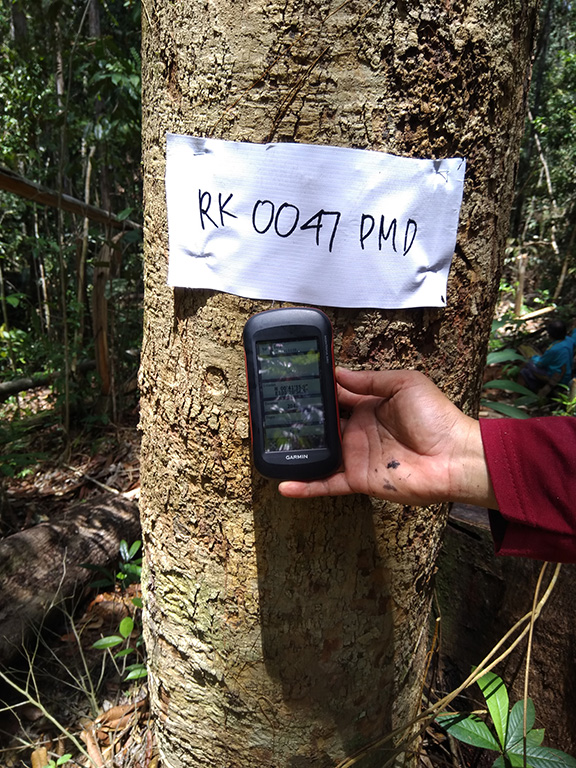 RK 0047 PMD
GARMIN